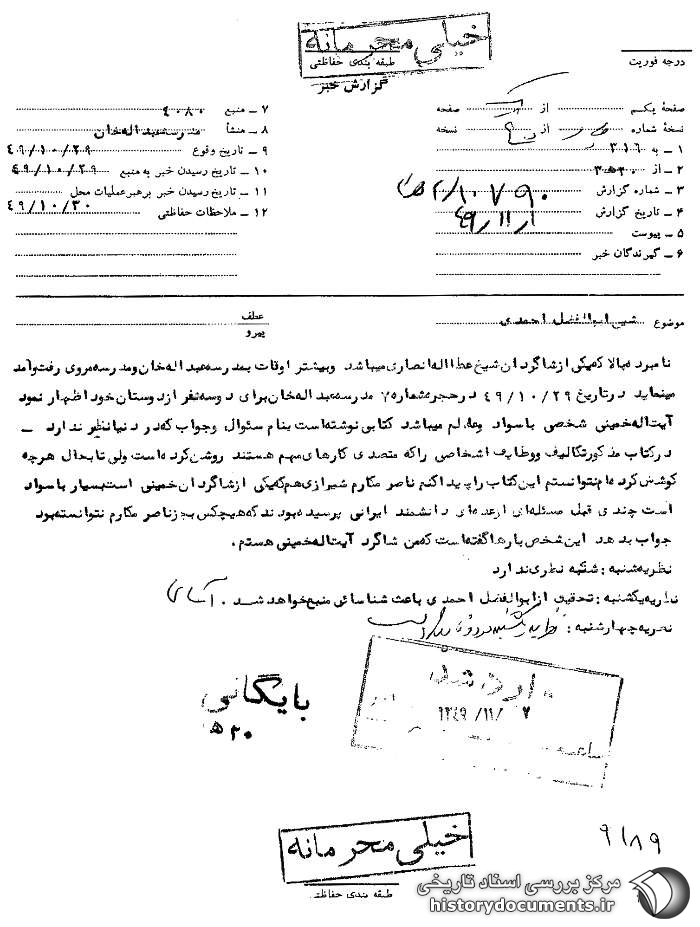 خیلی محرمانه
طبقه بندی حفاظتی
درجه فوریت
گزارش خبر
صفحهٔ یکم از صفحه
نسخهٔ شماره از نسخه
۱ ــ به ۳۱۶
۲ ــ از ۲۰ ه ۳
۳ ــ شماره گزارش ۱۰۷۹۰
۴ ــ تاریخ گزارش ۴۹/۱۱/۱
۵ ــ پیوست
۶ ــ گیرندگان خبر
۷ ــ منبع ۴۰۸۰
۸ ــ منشأ مدرسه عبداله خان
۹ ــ تاریخ وقوع ۴۹/۱۰/۲۹
۱۰ ــ تاریخ رسیدن خبر به منبع ۴۹/۱۰/۲۹
۱۱ ــ تاریخ رسیدن خبر برهبر عملیات محل
۱۲ ــ ملاحظات حفاظتی ۴۹/۱۰/۳۰
موضوع شیخ ابوالفضل احمدی
عطف
پیرو
نامبرده بالا که یکی از شاگردان شیخ عطااله انصاری میباشد وبیشتر اوقات بمدرسه عبداله خان ومدرسه مروی رفت وآمد
مینماید درتاریخ ۴۹/۱۰/۲۹ در حجره شماره ۷ مدرسه عبداله خان برای دوسه نفر از دوستان خود اظهار نمود
آیت اله خمینی شخصی باسواد وعالم میباشد کتابی نوشته است بنام سئوال وجواب که در دنیا نظیر ندارد ــ
درکتاب مذکور تکالیف ووظایف اشخاصی را که متصدی کارهای مهم هستند روشن کرده است ولی تا بحال هرچه
کوشش کرده ام نتوانستم این کتاب را پیدا کنم ناصر مکارم شیرازی هم که یکی از شاگردان خمینی است بسیار باسواد
است چندی قبل مسئله ای از عده ای دانشمند ایرانی پرسیده بودند که هیچکس بجز ناصر مکارم نتوانسته بود
جواب بدهد این شخص بارها گفته است که من شاگرد آیت اله خمینی هستم.
نظریه شنبه: شنبه نظری ندارد
نظریه یکشنبه: تحقیق از ابوالفضل احمدی باعث شناسائی منبع خواهد شد.
نظریه چهارشنبه: نظریه یکشنبه مورد تأیید است
وارد شد
۱۳۴۹/۱۱/۷
ساعت
بایگانی
۲۰ ه
خیلی محرمانه
طبقه بندی حفاظتی
۹۱۸۹
مرکز بررسی اسناد تاریخی
historydocuments.ir